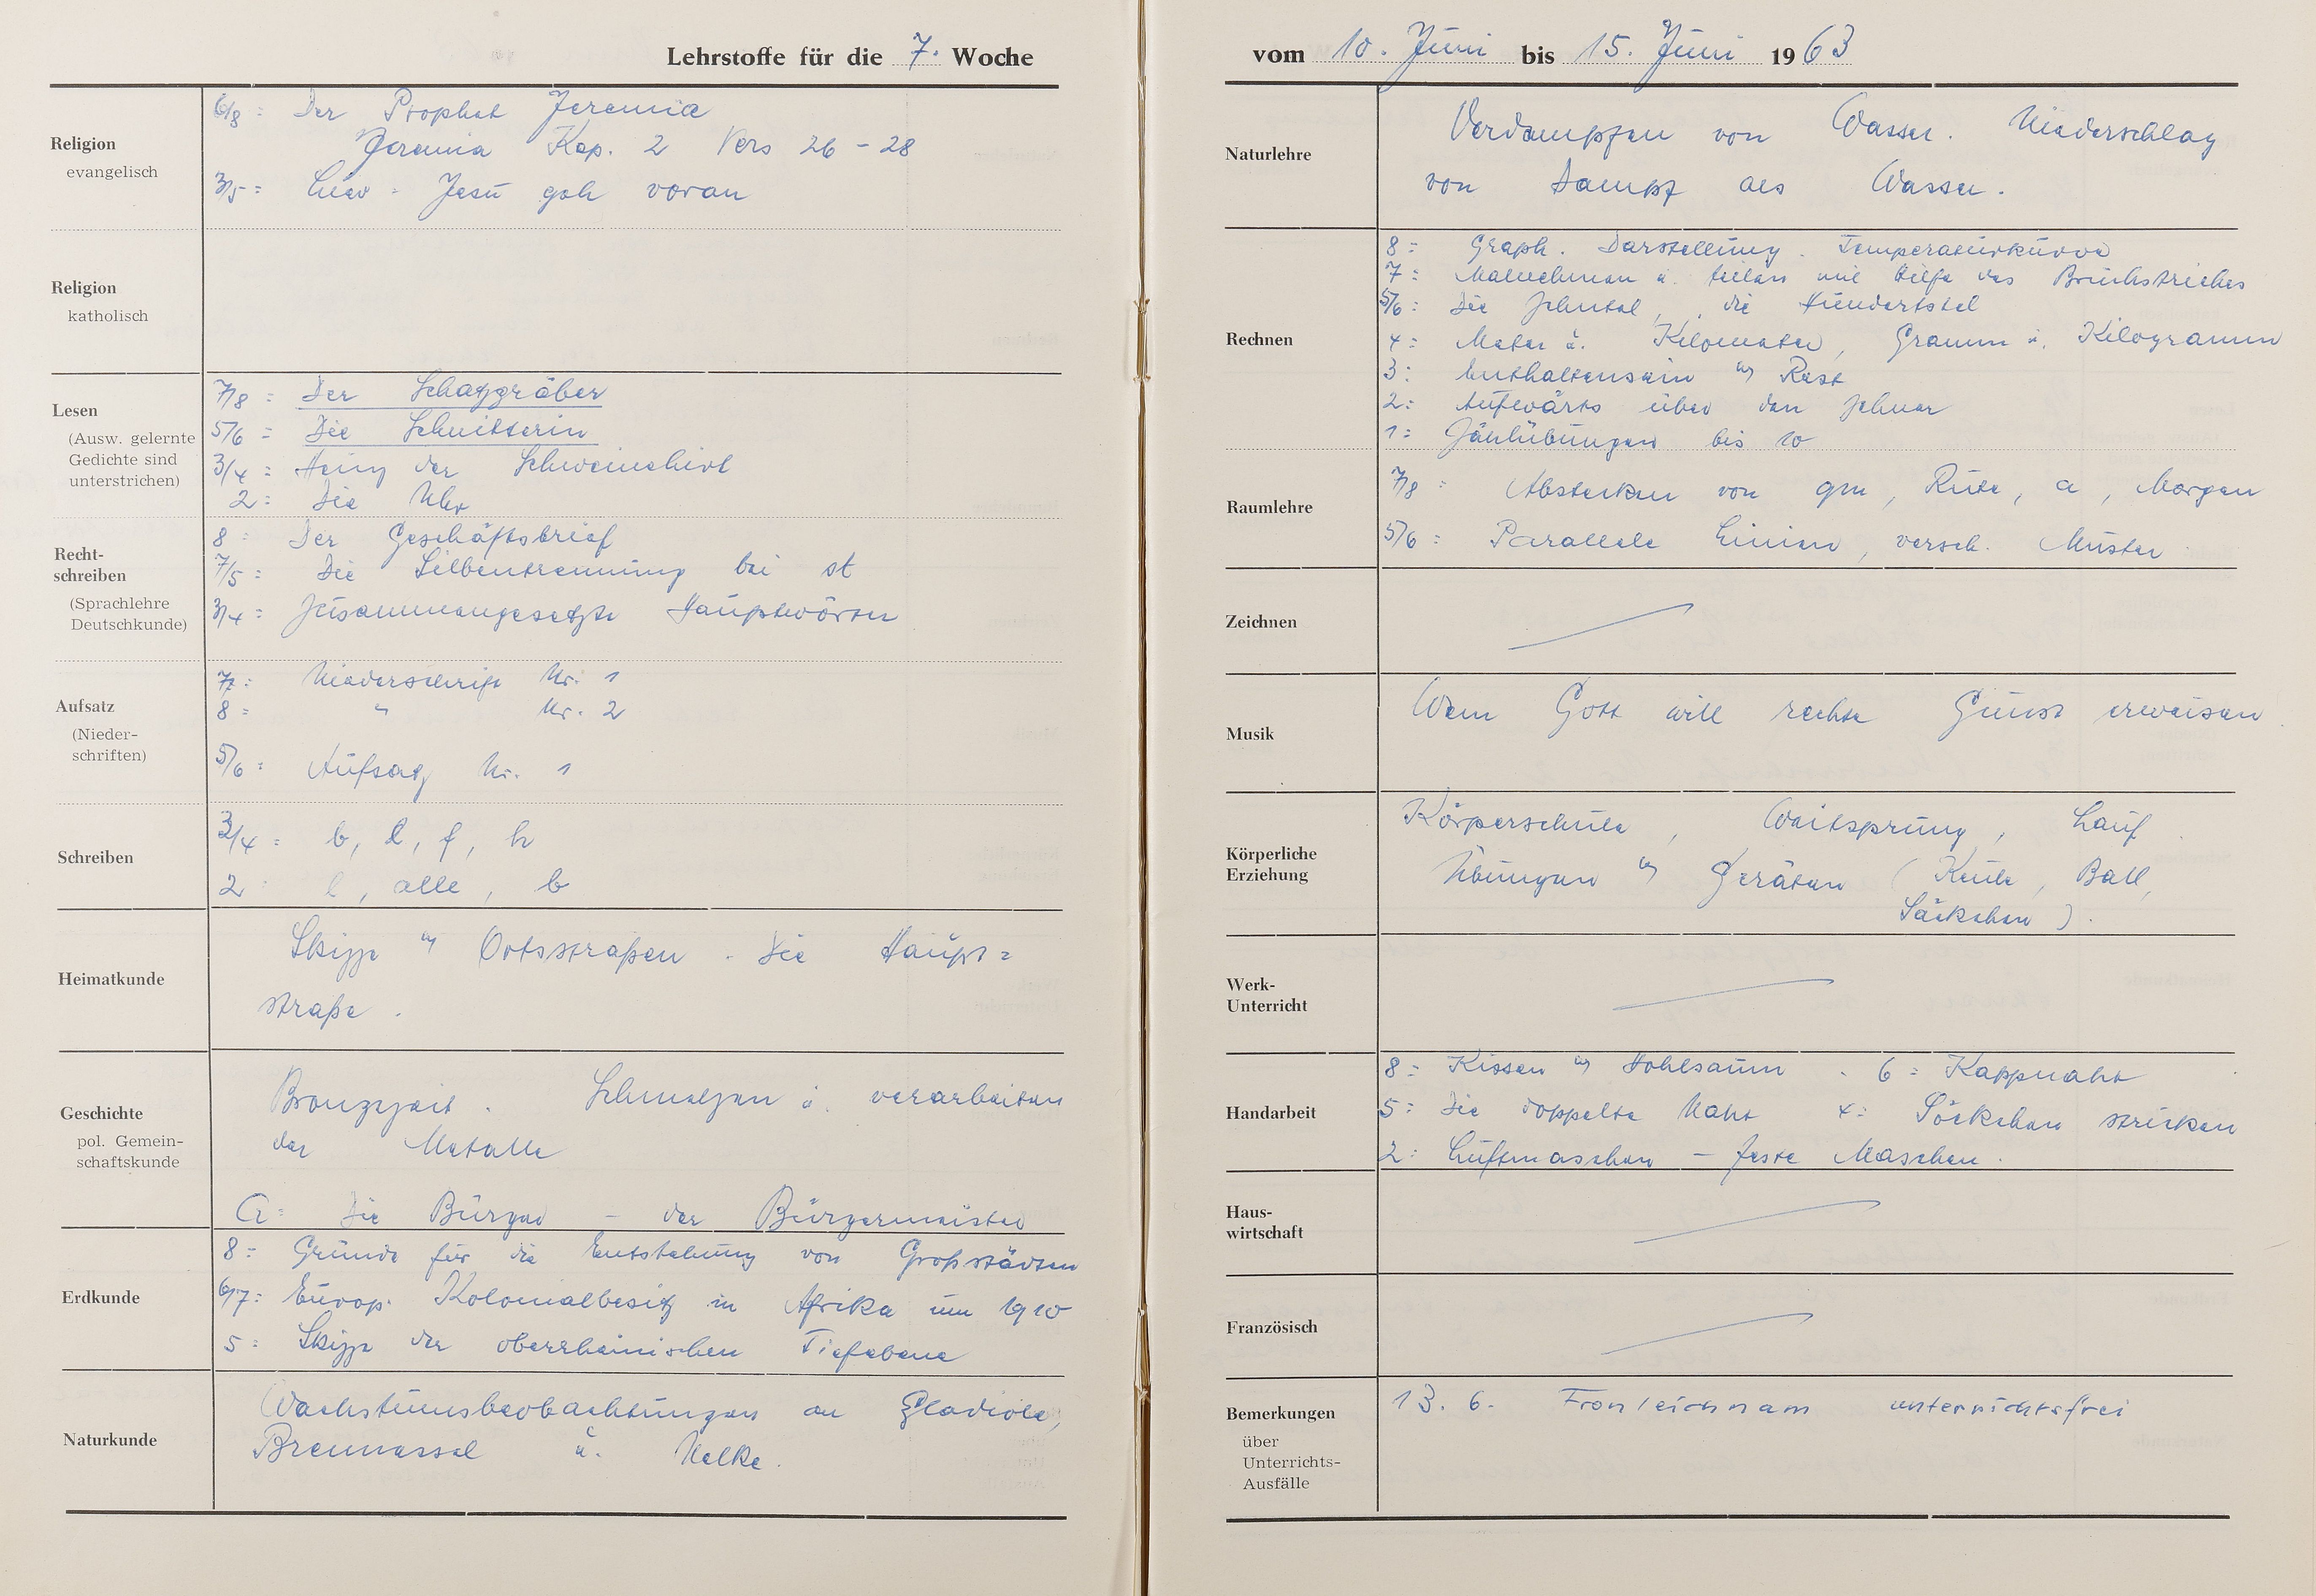 Lehrstoffe für die 7. Woche
Religion
evangelisch
6/8 = Der Prophet Jeremia
Jeremia Kap. 2 Vers 26 - 28
3/5 = Lied = Jesu geh voran
Religion
katholisch
Lesen
(Ausw. gelernte
Gedichte sind
unterstrichen)
7/8 = Der Schatzgräber
5/6 = Die Schnitterin
3/4 = Heinz der Schweinehirt
2 = Die Uhr
Recht-
schreiben
(Sprachlehre
Deutschkunde)
8 = Der Geschäftsbrief
7/5 = Die Silbentrennung bei st
3/4 = Zusammengesetzte Hauptwörter
Aufsatz
(Nieder-
schriften)
7 = Niederschrift Nr. 1
8 = " Nr. 2
5/6 = Aufsatz Nr. 1
Schreiben
3/4 = b, l, f, h
2 = l, alle, b
Heimatkunde
Skizze v. Ortsstraßen. Die Haupt=
straße.
Geschichte
pol. Gemein-
schaftskunde
Bronzezeit. Schmelzen u. verarbeiten
der Metalle
G = Die Bürger - der Bürgermeister
Erdkunde
8 = Gründe für die Entstehung von Großstädten
6/7 = Europ. Kolonialbesitz in Afrika um 1910
5 = Skizze der oberrheinischen Tiefebene
Naturkunde
Wachstumsbeobachtungen an Gladiole,
Brennessel u. Nelke.
vom 10. Juni bis 15. Juni 1963
Naturlehre
Verdampfen von Wasser. Niederschlag
von Dampf als Wasser.
Rechnen
8 = Graph. Darstellung. Temperaturkurve
7 = Malnehmen u. teilen mit Hilfe des Bruchstriches
5/6 = Die Zehntel, die Hundertstel
4 = Meter u. Kilometer, Gramm u. Kilogramm
3 = Enthaltensein m. Rest
2 = Aufwärts über den Zehner
1 = Zählübungen bis 10
Raumlehre
7/8 = Abstecken von qm, Rute, a, Morgen
5/6 = Parallele Linien, versch. Muster
Zeichnen
Musik
Wem Gott will rechte Gunst erweisen
Körperliche
Erziehung
Körperschule, Weitsprung, Lauf
Übungen m. Geräten (Keule, Ball,
Säckchen).
Werk-
Unterricht
Handarbeit
8 = Kissen m. Hohlsaum . 6 = Kappnaht
5 = Die doppelte Naht 4 = Söckchen stricken
2 = Luftmaschen - feste Maschen.
Haus-
wirtschaft
Französisch
Bemerkungen
über
Unterrichts-
Ausfälle
13. 6. Fronleichnam unterrichtsfrei